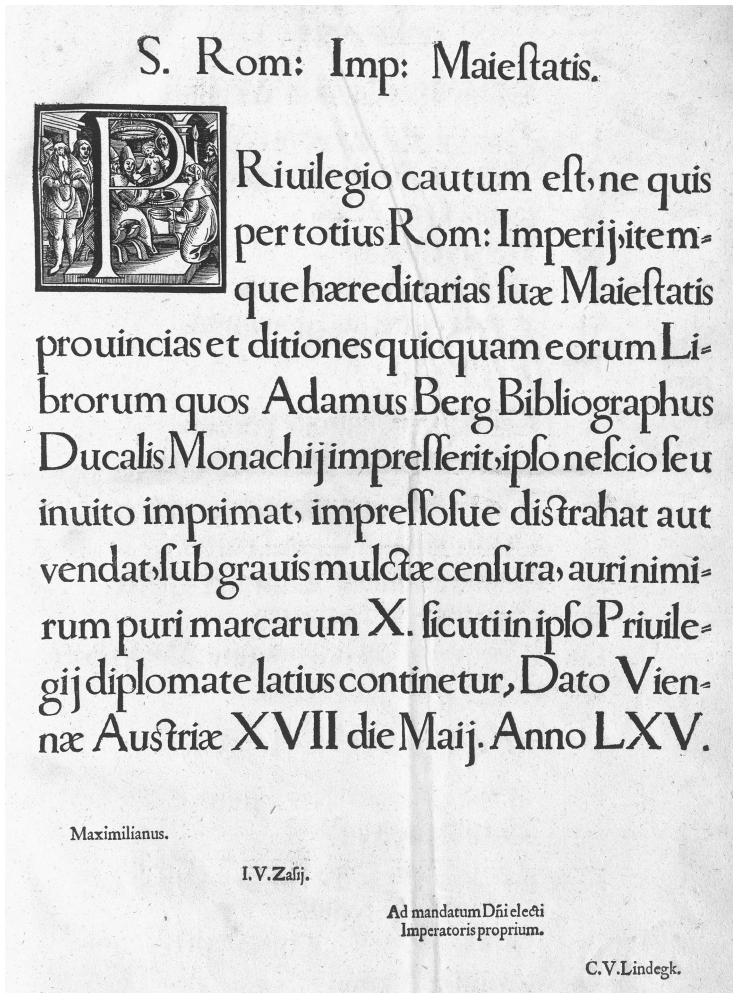 S. Rom: Imp: Maieſtatis.
PRiuilegio cautum eſt, ne quis
per totius Rom: Imperij, item⸗
que hæreditarias ſuæ Maieſtatis
prouincias et ditiones quicquam eorum Li⸗
brorum quos Adamus Berg Bibliographus
Ducalis Monachij impreſſerit, ipſo neſcio ſeu
inuito imprimat, impreſſoſue diſtrahat aut
vendat, ſub grauis mulctæ cenſura, auri nimi⸗
rum puri marcarum X. ſicuti in ipſo Priuile⸗
gij diplomate latius continetur, Dato Vien⸗
næ Auſtriæ XVII die Maij. Anno LXV.
Maximilianus.
I.V.Zaſij.
Ad mandatum Dñi electi
Imperatoris proprium.
C.V.Lindegk.